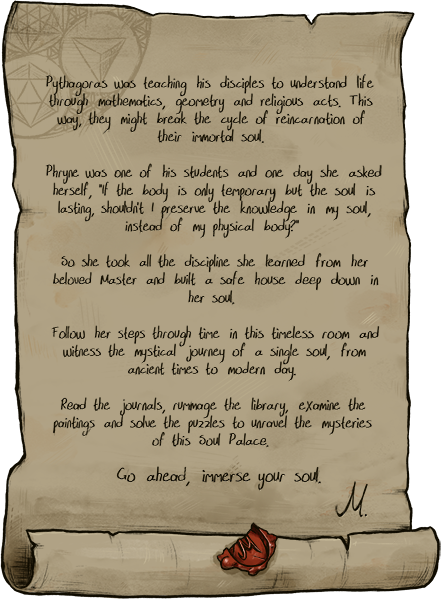 Pythagoras was teaching his disciples to understand life
through mathematics, geometry and religious acts. This
way, they might break the cycle of reincarnation of
their immortal soul.
Phryne was one of his students and one day she asked
herself, "If the body is only temporary but the soul is
lasting, shouldn't I preserve the knowledge in my soul,
instead of my physical body?"
So she took all the discipline she learned from her
beloved Master and built a safe house deep down in
her soul.
Follow her steps through time in this timeless room and
witness the mystical journey of a single soul, from
ancient times to modern day.
Read the journals, rummage the library, examine the
paintings and solve the puzzles to unravel the mysteries
of this Soul Palace.
Go ahead, immerse your soul.
M.
M